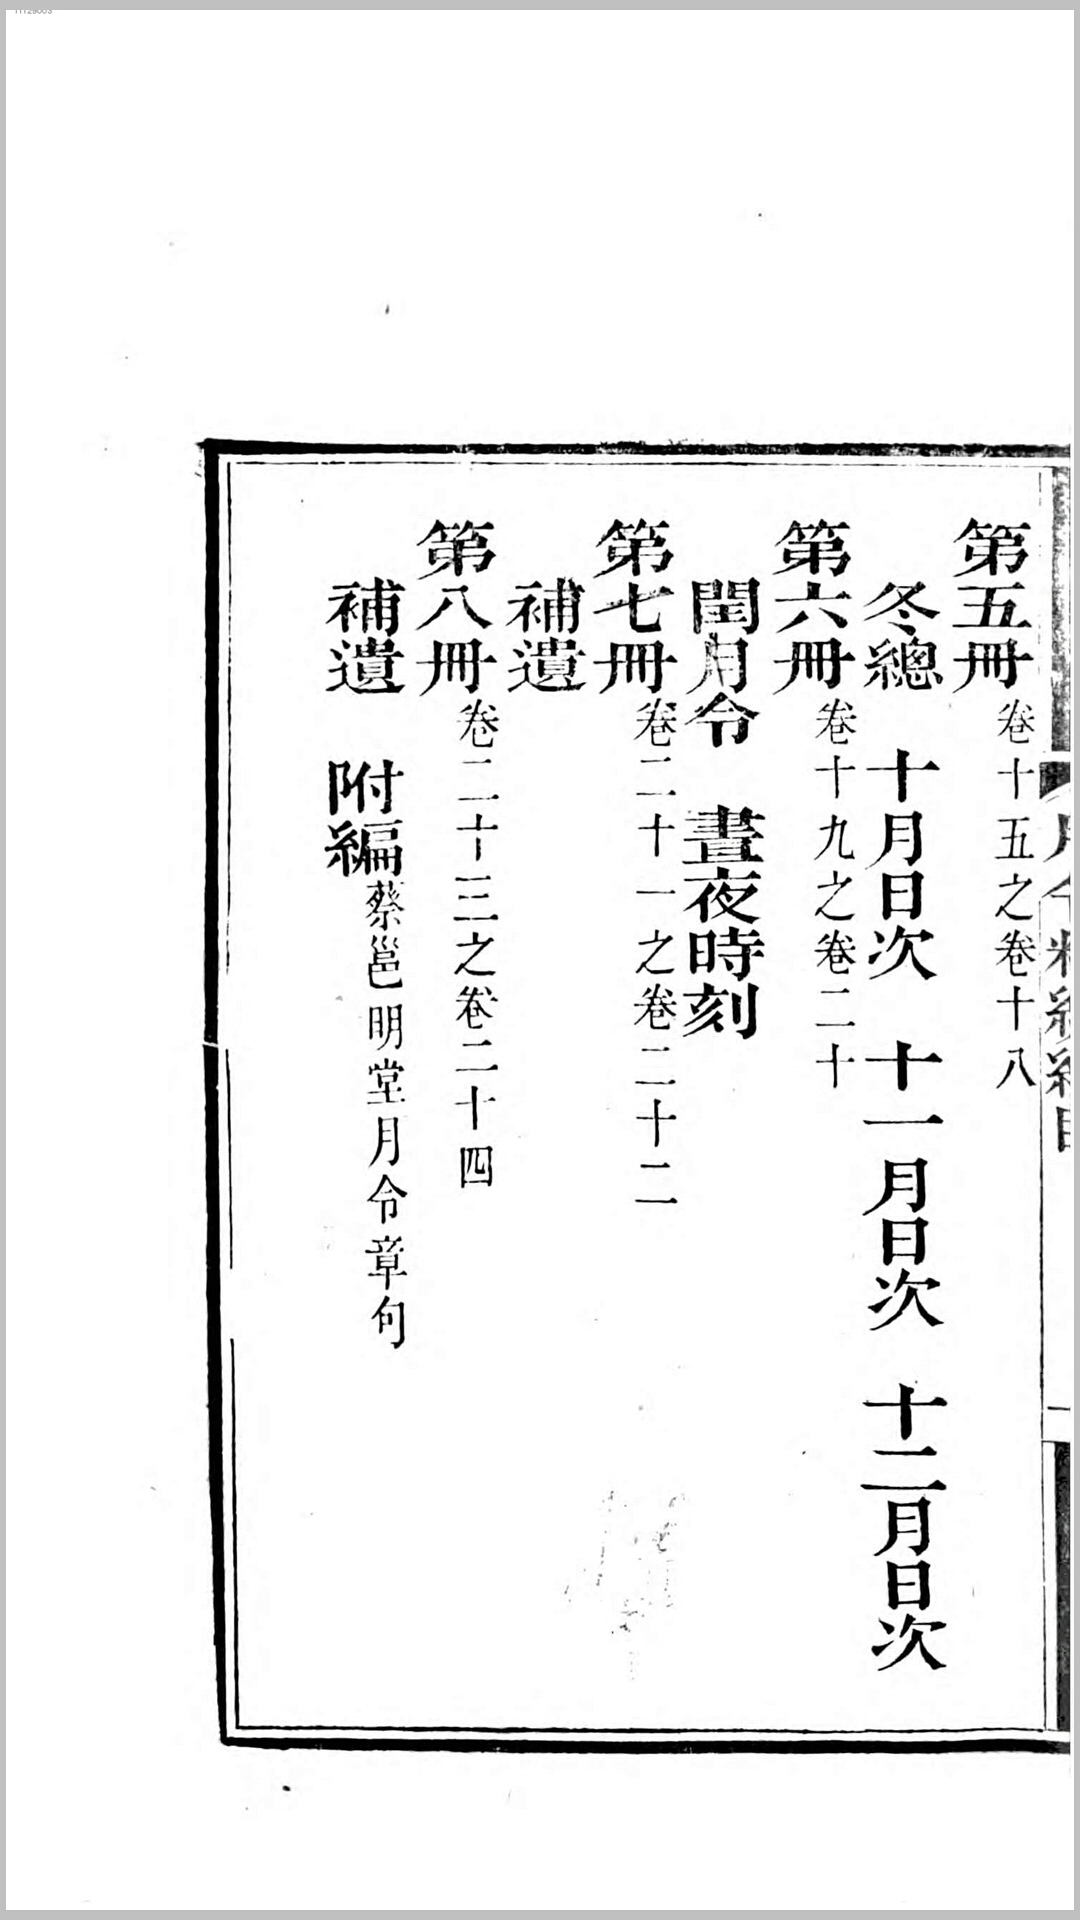 第五冊 卷十五之卷十八
冬總 十月日次 十一月日次 十二月日次
第六冊 卷十九之卷二十
閏月令 晝夜時刻
第七冊 卷二十一之卷二十二
補遺
第八冊 卷二十三之卷二十四
補遺 附編 蔡邕明堂月令章句